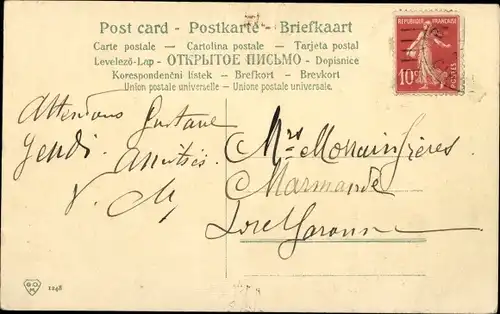 Post card - Postkarte - Briefkaart
Carte postale — Cartolina postale — Tarjeta postal
Levelező-Lap — ОТКРЫТОЕ ПИСЬМО — Dopisnice
Korespondenční listek — Brefkort — Brevkort
Union postale universelle — Unione postale universale.
REPUBLIQUE FRANÇAISE
10c
POSTES
Attendons Gustave
Jeudi. Amitiés.
V. M
Mrs Morain frères
Marmande
Lot et Garonne
1248